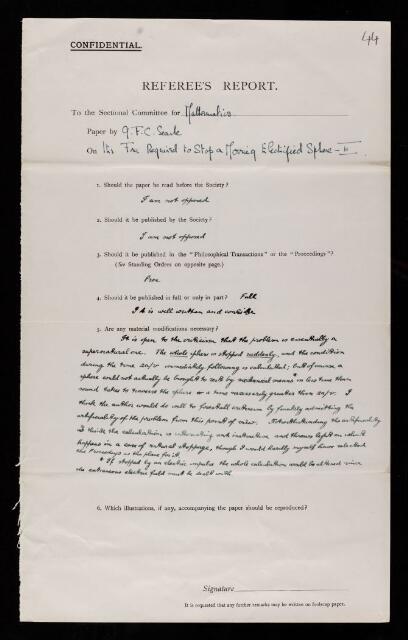 44
CONFIDENTIAL.
REFEREE'S REPORT.
To the Sectional Committee for Mathematics
Paper by G.F.C. Searle
On The Force Required to Stop a Moving Electrified Sphere – II
1. Should the paper be read before the Society?
I am not opposed
2. Should it be published by the Society?
I am not opposed
3. Should it be published in the "Philosophical Transactions" or the "Proceedings"?
(See Standing Orders on opposite page.)
Proc
4. Should it be published in full or only in part? Full
It is well written and
5. Are any material modifications necessary?
It is open to the criticism that the problem is essentially a
supernatural one. The whole sphere is stopped suddenly, and the condition
during the time 2a/v immediately following is calculated; but of course a
sphere could not actually be brought to rest by mechanical means* in less time than
sound takes to traverse the sphere or a time necessarily greater than 2a/v. I
think the author would do well to forestall criticism by frankly admitting the
artificiality of the problem from this point of view. Notwithstanding the artificiality
I think the calculation is interesting and instructive, and throws light on what
happens in a case of natural stoppage, though I would hardly myself have selected
the Proceedings as the place for it.
* If stopped by an electric impulse the whole calculation would be altered since
an extraneous electric field must be dealt with.
6. Which illustrations, if any, accompanying the paper should be reproduced?
Signature
It is requested that any further remarks may be written on foolscap paper.